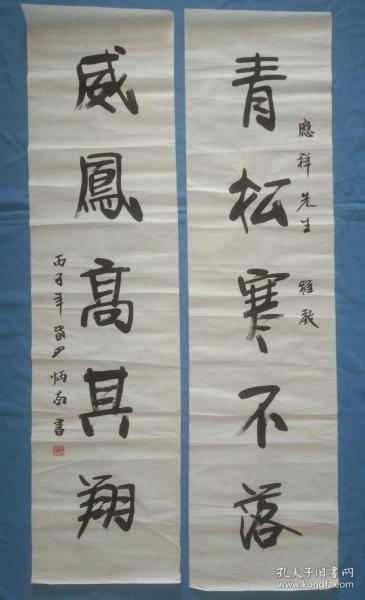 應祥先生 雅教
青松寒不落
威鳳高其翔
丙子年 炳南書
孔夫子旧书网
www.kongfz.com